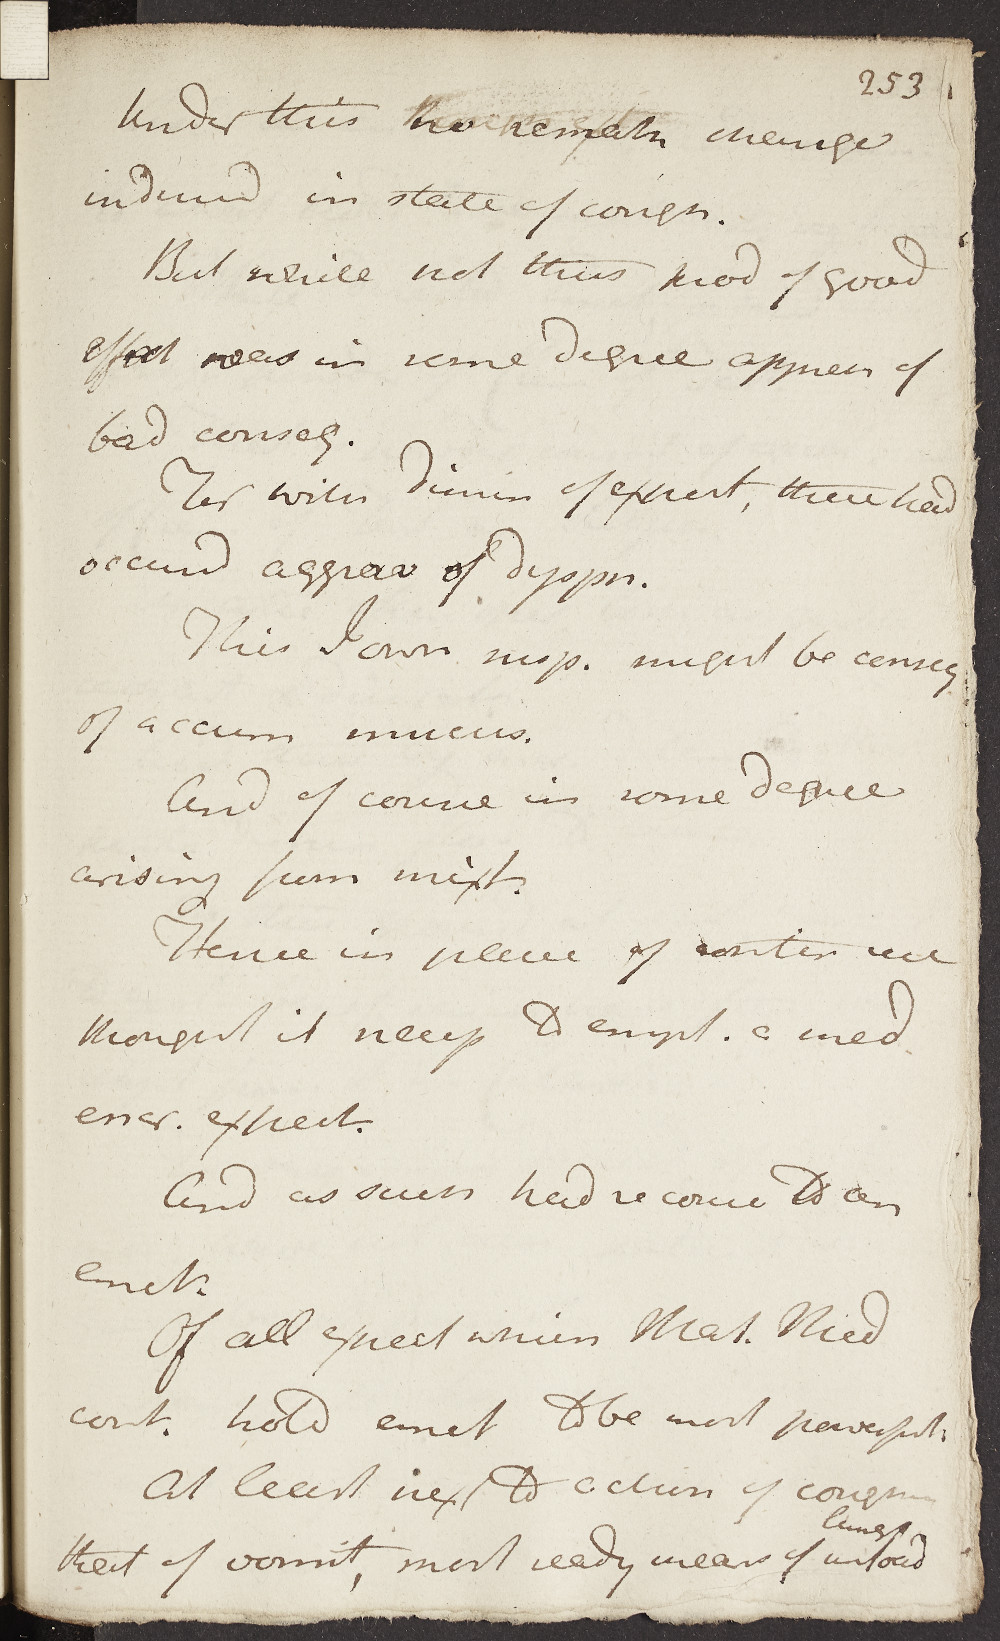 253
Under this no remarh change
induced in state of cough.
But while not thus prod of good
effect was in some degree appreh of
bad conseq.
For with dimin of expect, there had
occurrd aggrav of dyspn.
This I own susp. might be conseq
of accum mucus.
And of course in some degree
arising from mixt.
Hence in place of contin we
thought it necess to empl. a med
ener. expect.
And as such had recourse to an
emet.
Of all expect which Mat. Med
cont. hold emet to be most powerful.
At least next to action of cough
that of vomit, most ready means of unload
lungs